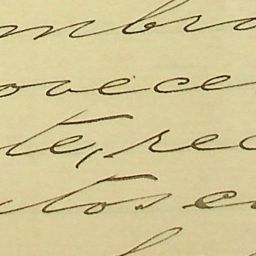 mbro
ovece
te, rec
tose